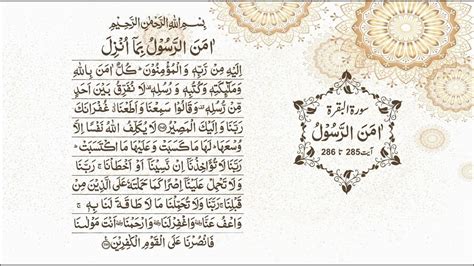 بِسْمِ اللهِ الرَّحْمٰنِ الرَّحِيْمِ
اٰمَنَ الرَّسُوْلُ بِمَآ اُنْزِلَ
اِلَيْهِ مِنْ رَّبِّهٖ وَ الْمُؤْمِنُوْنَ ؕ كُلٌّ اٰمَنَ بِاللهِ
وَمَلٰٓئِكَتِهٖ وَكُتُبِهٖ وَ رُسُلِهٖ ؕ لَا نُفَرِّقُ بَيْنَ اَحَدٍ
مِّنْ رُّسُلِهٖ ؕ وَ قَالُوْا سَمِعْنَا وَ اَطَعْنَا ٭۫ غُفْرَانَكَ
رَبَّنَا وَ اِلَيْكَ الْمَصِيْرُ ۝ لَا يُكَلِّفُ اللهُ نَفْسًا اِلَّا
وُسْعَهَا ؕ لَهَا مَا كَسَبَتْ وَ عَلَيْهَا مَا اكْتَسَبَتْ ؕ
رَبَّنَا لَا تُؤَاخِذْنَآ اِنْ نَّسِيْنَآ اَوْ اَخْطَاْنَا ۚ رَبَّنَا
وَ لَا تَحْمِلْ عَلَيْنَآ اِصْرًا كَمَا حَمَلْتَهٗ عَلَى الَّذِيْنَ مِنْ
قَبْلِنَا ۚ رَبَّنَا وَ لَا تُحَمِّلْنَا مَا لَا طَاقَةَ لَنَا بِهٖ ۚ
وَ اعْفُ عَنَّا ٝ وَ اغْفِرْ لَنَا ٝ وَ ارْحَمْنَا ٝ اَنْتَ مَوْلٰىنَا
فَانْصُرْنَا عَلَى الْقَوْمِ الْكٰفِرِيْنَ ۝
سورة البقرة
اٰمَنَ الرَّسُوْلُ
آیت 285 تا 286